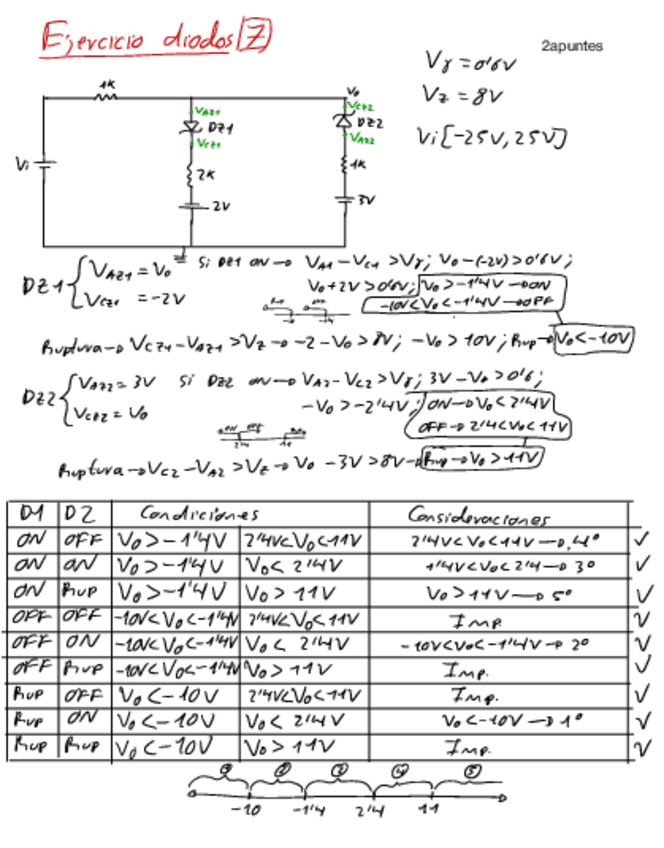 Ejercicio diodos (Z)
2apuntes
Vγ = 0'6V
Vz = 8V
Vi [-25V, 25V]
1K
Vo
VAZ1
DZ1
VCZ1
VCZ2
DZ2
VAZ2
Vi
2K
1K
2V
3V
DZ1 { VAZ1 = Vo
VCZ1 = -2V
Si DZ1 ON → VA1 - VC1 > Vγ; Vo - (-2V) > 0'6V;
Vo + 2V > 0'6V; Vo > -1'4V → ON
-10V < Vo < -1'4V → OFF
Ruptura → VCZ1 - VAZ1 > Vz → -2 - Vo > 8V; -Vo > 10V; Rup → Vo < -10V
DZ2 { VAZ2 = 3V
VCZ2 = Vo
Si DZ2 ON → VA2 - VC2 > Vγ; 3V - Vo > 0'6;
-Vo > -2'4V; ON → Vo < 2'4V
OFF → 2'4 < Vo < 11V
ON OFF
2'4 11
Ruptura → VC2 - VA2 > Vz → Vo - 3V > 8V → Rup → Vo > 11V
D1 D2 Condiciones Consideraciones
ON OFF Vo > -1'4V 2'4V < Vo < 11V 2'4V < Vo < 11V → 4º ✓
ON ON Vo > -1'4V Vo < 2'4V 1'4V < Vo < 2'4 → 3º ✓
ON Rup Vo > -1'4V Vo > 11V Vo > 11V → 5º ✓
OFF OFF -10V < Vo < -1'4V 2'4V < Vo < 11V Imp. ✓
OFF ON -10V < Vo < -1'4V Vo < 2'4V -10V < Vo < -1'4V → 2º ✓
OFF Rup -10V < Vo < -1'4V Vo > 11V Imp. ✓
Rup OFF Vo < -10V 2'4V < Vo < 11V Imp. ✓
Rup ON Vo < -10V Vo < 2'4V Vo < -10V → 1º ✓
Rup Rup Vo < -10V Vo > 11V Imp. ✓
① ② ③ ④ ⑤
-10 -1'4 2'4 11